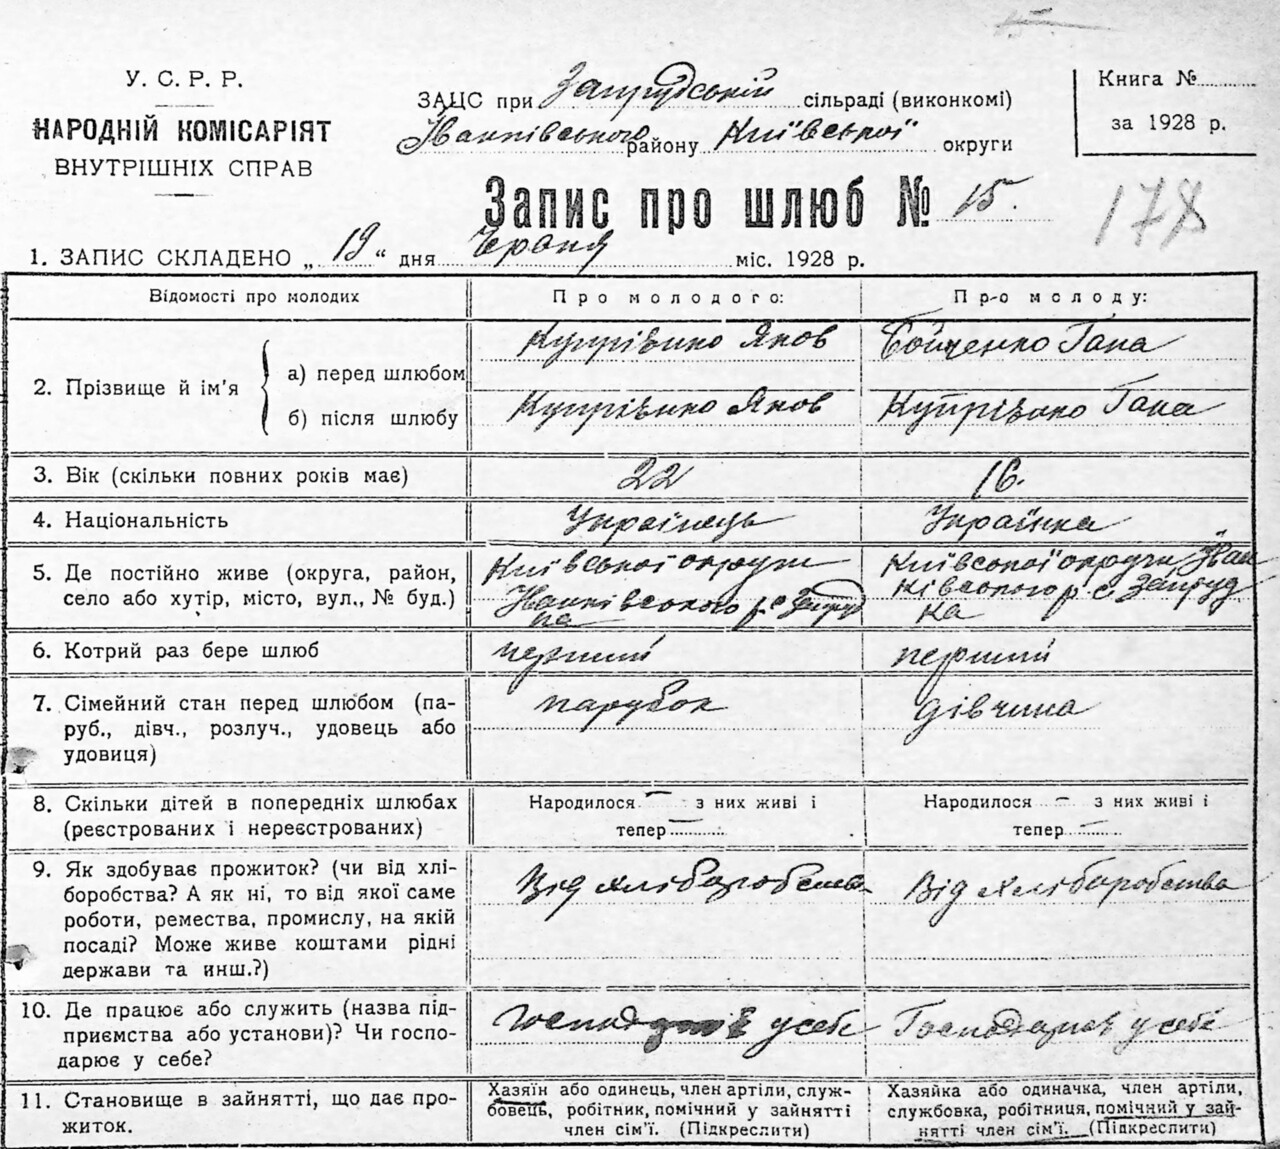 У. С. Р. Р.
НАРОДНІЙ КОМІСАРІЯТ
ВНУТРІШНІХ СПРАВ
ЗАЦС при Запрудській сільраді (виконкомі)
Іванківського району Київської округи
Книга №
за 1928 р.
Запис про шлюб № 15.
178
1. ЗАПИС СКЛАДЕНО „ 19 “ дня Червня міс. 1928 р.
Відомості про молодих
Про молодого:
Про молоду:
2. Прізвище й ім'я
а) перед шлюбом
Купрієнко Яков
Бойченко Гана
б) після шлюбу
Купрієнко Яков
Купрієнко Гана
3. Вік (скільки повних років має)
22
16.
4. Національність
Українець
Українка
5. Де постійно живе (округа, район,
село або хутір, місто, вул., № буд.)
Київської округи
Іванківського р. с Запруд
ка
Київської округи Іван
ківського р. с. Запруд
ка
6. Котрий раз бере шлюб
перший
перший
7. Сімейний стан перед шлюбом (па-
руб., дівч., розлуч., удовець або
удовиця)
парубок
дівчина
8. Скільки дітей в попередніх шлюбах
(реєстрованих і нереєстрованих)
Народилося — з них живі і
тепер —
Народилося — з них живі і
тепер —
9. Як здобуває прожиток? (чи від хлі-
боробства? А як ні, то від якої саме
роботи, ремества, промислу, на якій
посаді? Може живе коштами рідні
держави та инш.?)
Від хліборобства
Від хліборобства
10. Де працює або служить (назва під-
приємства або установи)? Чи госпо-
дарює у себе?
у себе
у себе
11. Становище в зайнятті, що дає про-
житок.
Хазяїн або одинець, член артіли, служ-
бовець, робітник, помічний у зайнятті
член сім'ї. (Підкреслити)
Хазяйка або одиначка, член артіли,
службовка, робітниця, помічний у зай-
нятті член сім'ї. (Підкреслити)